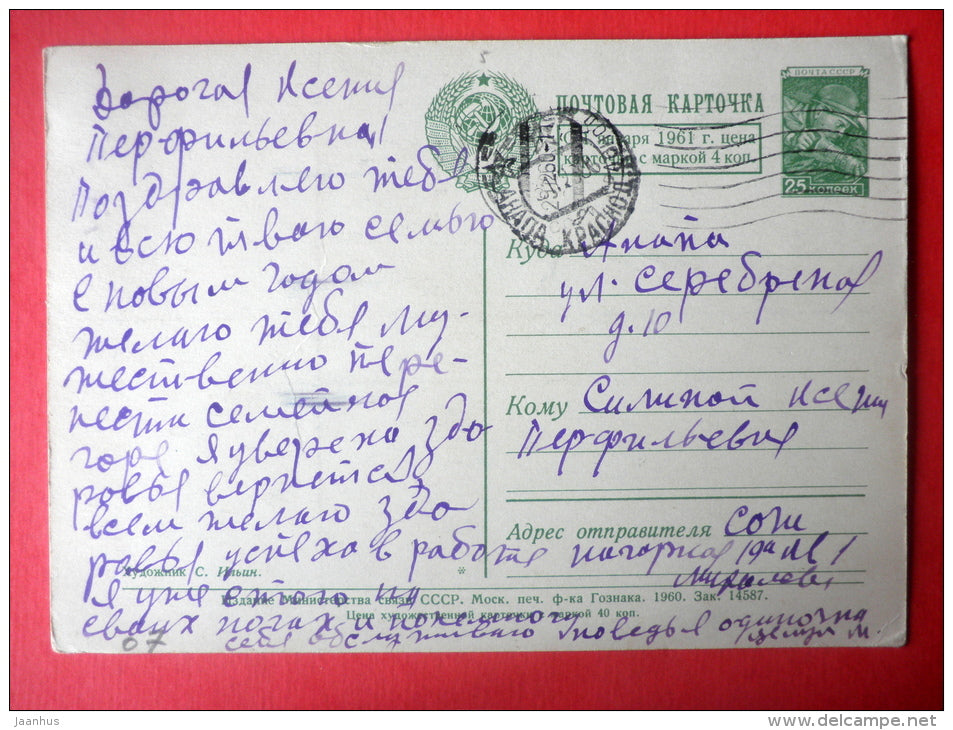 Дорогая Ксения
Перфильевна!
Поздравляю тебя
и всю твою семью
с новым годом
желаю тебе му-
жественно пере-
нести семейное
горе я уверена здо
ровья вернется
всем желаю здо
ровья успеха в работе
я уже стою на
своих ногах и немного
себя обслуживаю
ПОЧТА СССР
25 копеек
ПОЧТОВАЯ КАРТОЧКА
января 1961 г. цена
с маркой 4 коп.
АНАПА КРАСНОД.
Куда Анапа
ул. Серебреная
д. 10
Кому Силиной Ксении
Перфильевне
Адрес отправителя Сочи
нагорная 19а
Художник С. Ильин.
*
Издание Министерства связи СССР. Моск. печ. ф-ка Гознака. 1960. Зак. 14587.
Цена художественной карточки с маркой 40 коп.
07
Jaanhus
www.delcampe.net